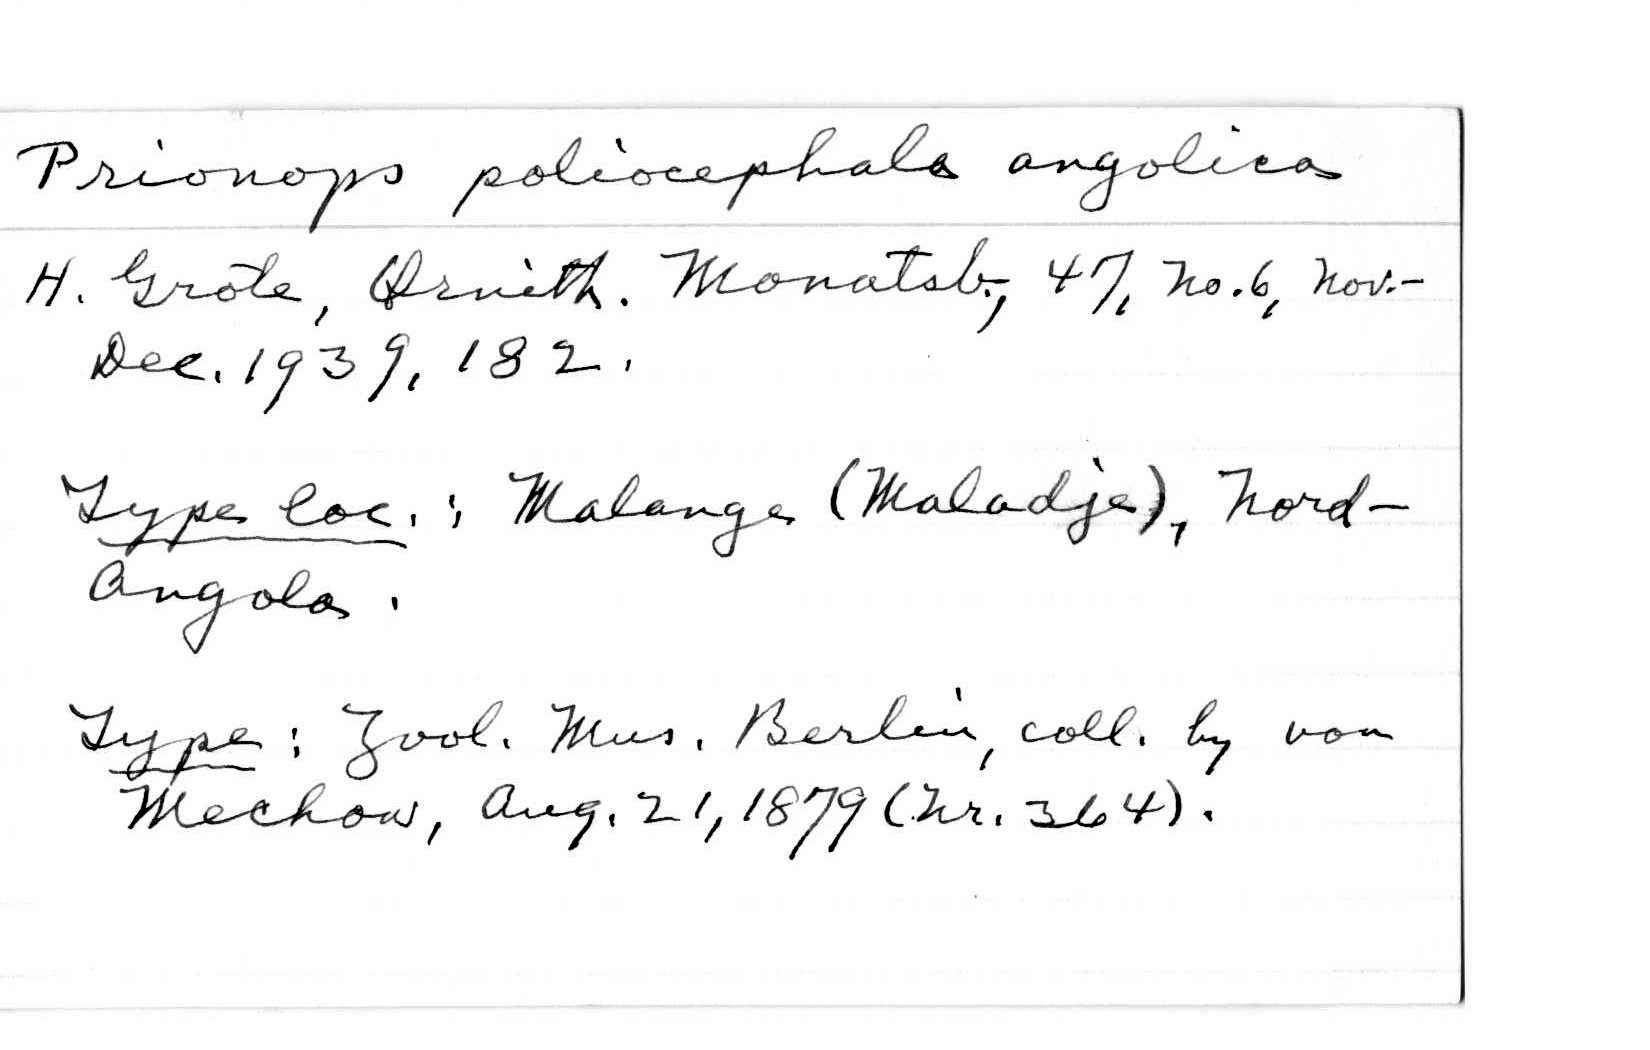 Prionops poliocephala angolica
H. Grote, Ornith. Monatsb., 47, no. 6, Nov.-
Dec. 1939, 182.
Type loc.: Malange (Maladje), Nord-
Angola.
Type: Zool. Mus. Berlin, coll. by von
Mechow, Aug. 21, 1879 (Nr. 364).